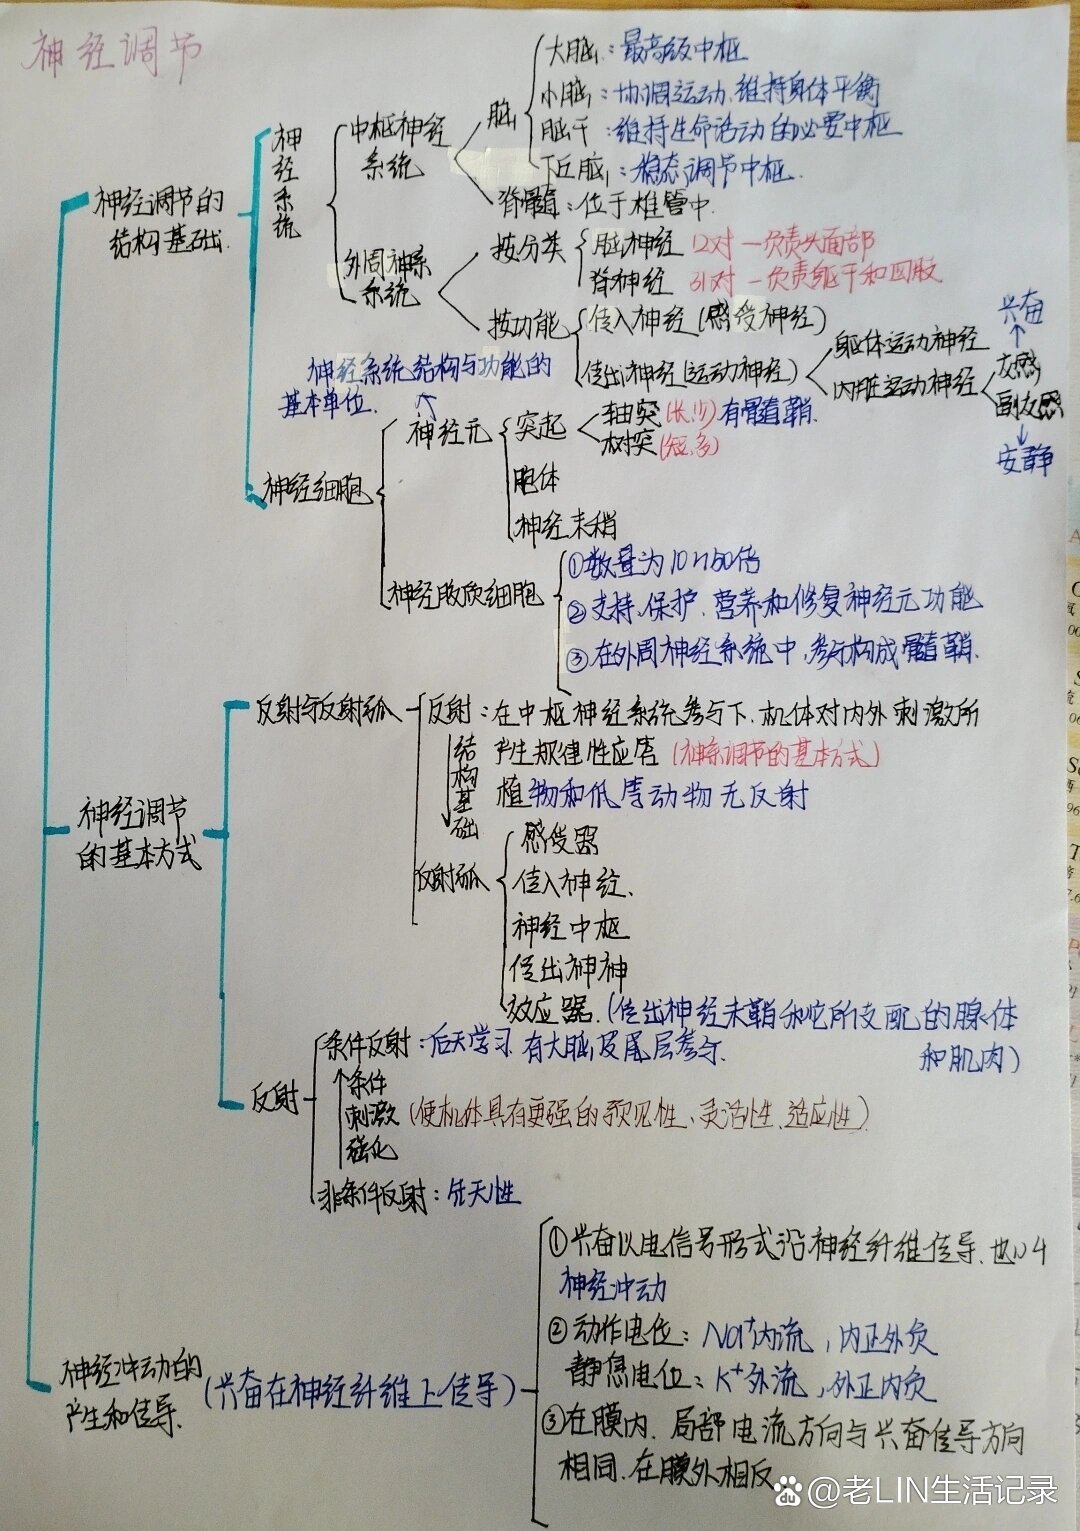 神经调节
大脑：最高级中枢
小脑：协调运动、维持身体平衡
脑干：维持生命活动的必要中枢
下丘脑：稳态调节中枢.
脑
脊髓：位于椎管中.
中枢神经
系统
神经系统
神经调节的
结构基础.
外周神系
系统
按分类
脑神经 12对 — 负责头面部
脊神经 31对 — 负责躯干和四肢
按功能
传入神经(感受神经)
传出神经(运动神经)
躯体运动神经
内脏运动神经
兴奋
交感
副交感
安静
神经系统结构与功能的
基本单位.
神经细胞
神经元
突起
轴突(长,少)有髓鞘.
树突(短,多)
胞体
神经末稍
神经胶质细胞
①数量为10~50倍
②支持、保护、营养和修复神经元功能
③在外周神经系统中,参与构成髓鞘.
神经调节
的基本方式
反射与反射弧
反射：在中枢神经系统参与下、机体对内外刺激所
产生规律性应答(神系调节的基本方式)
植物和低等动物无反射
结构基础
反射弧
感受器
传入神经、
神经中枢
传出神神
效应器.(传出神经末鞘和它所支配的腺体
和肌肉)
反射
条件反射：后天学习.有大脑皮层参与.
条件
刺激
强化
(使机体具有更强的预见性、灵活性、适应性)
非条件反射：先天性
神经冲动的
产生和传导.
(兴奋在神经纤维上传导)
①兴奋以电信号形式沿神经纤维传导、也叫
神经冲动
②动作电位：Na⁺内流，内正外负
静息电位：K⁺外流，外正内负
③在膜内、局部电流方向与兴奋传导方向
相同.在膜外相反
@老LIN生活记录